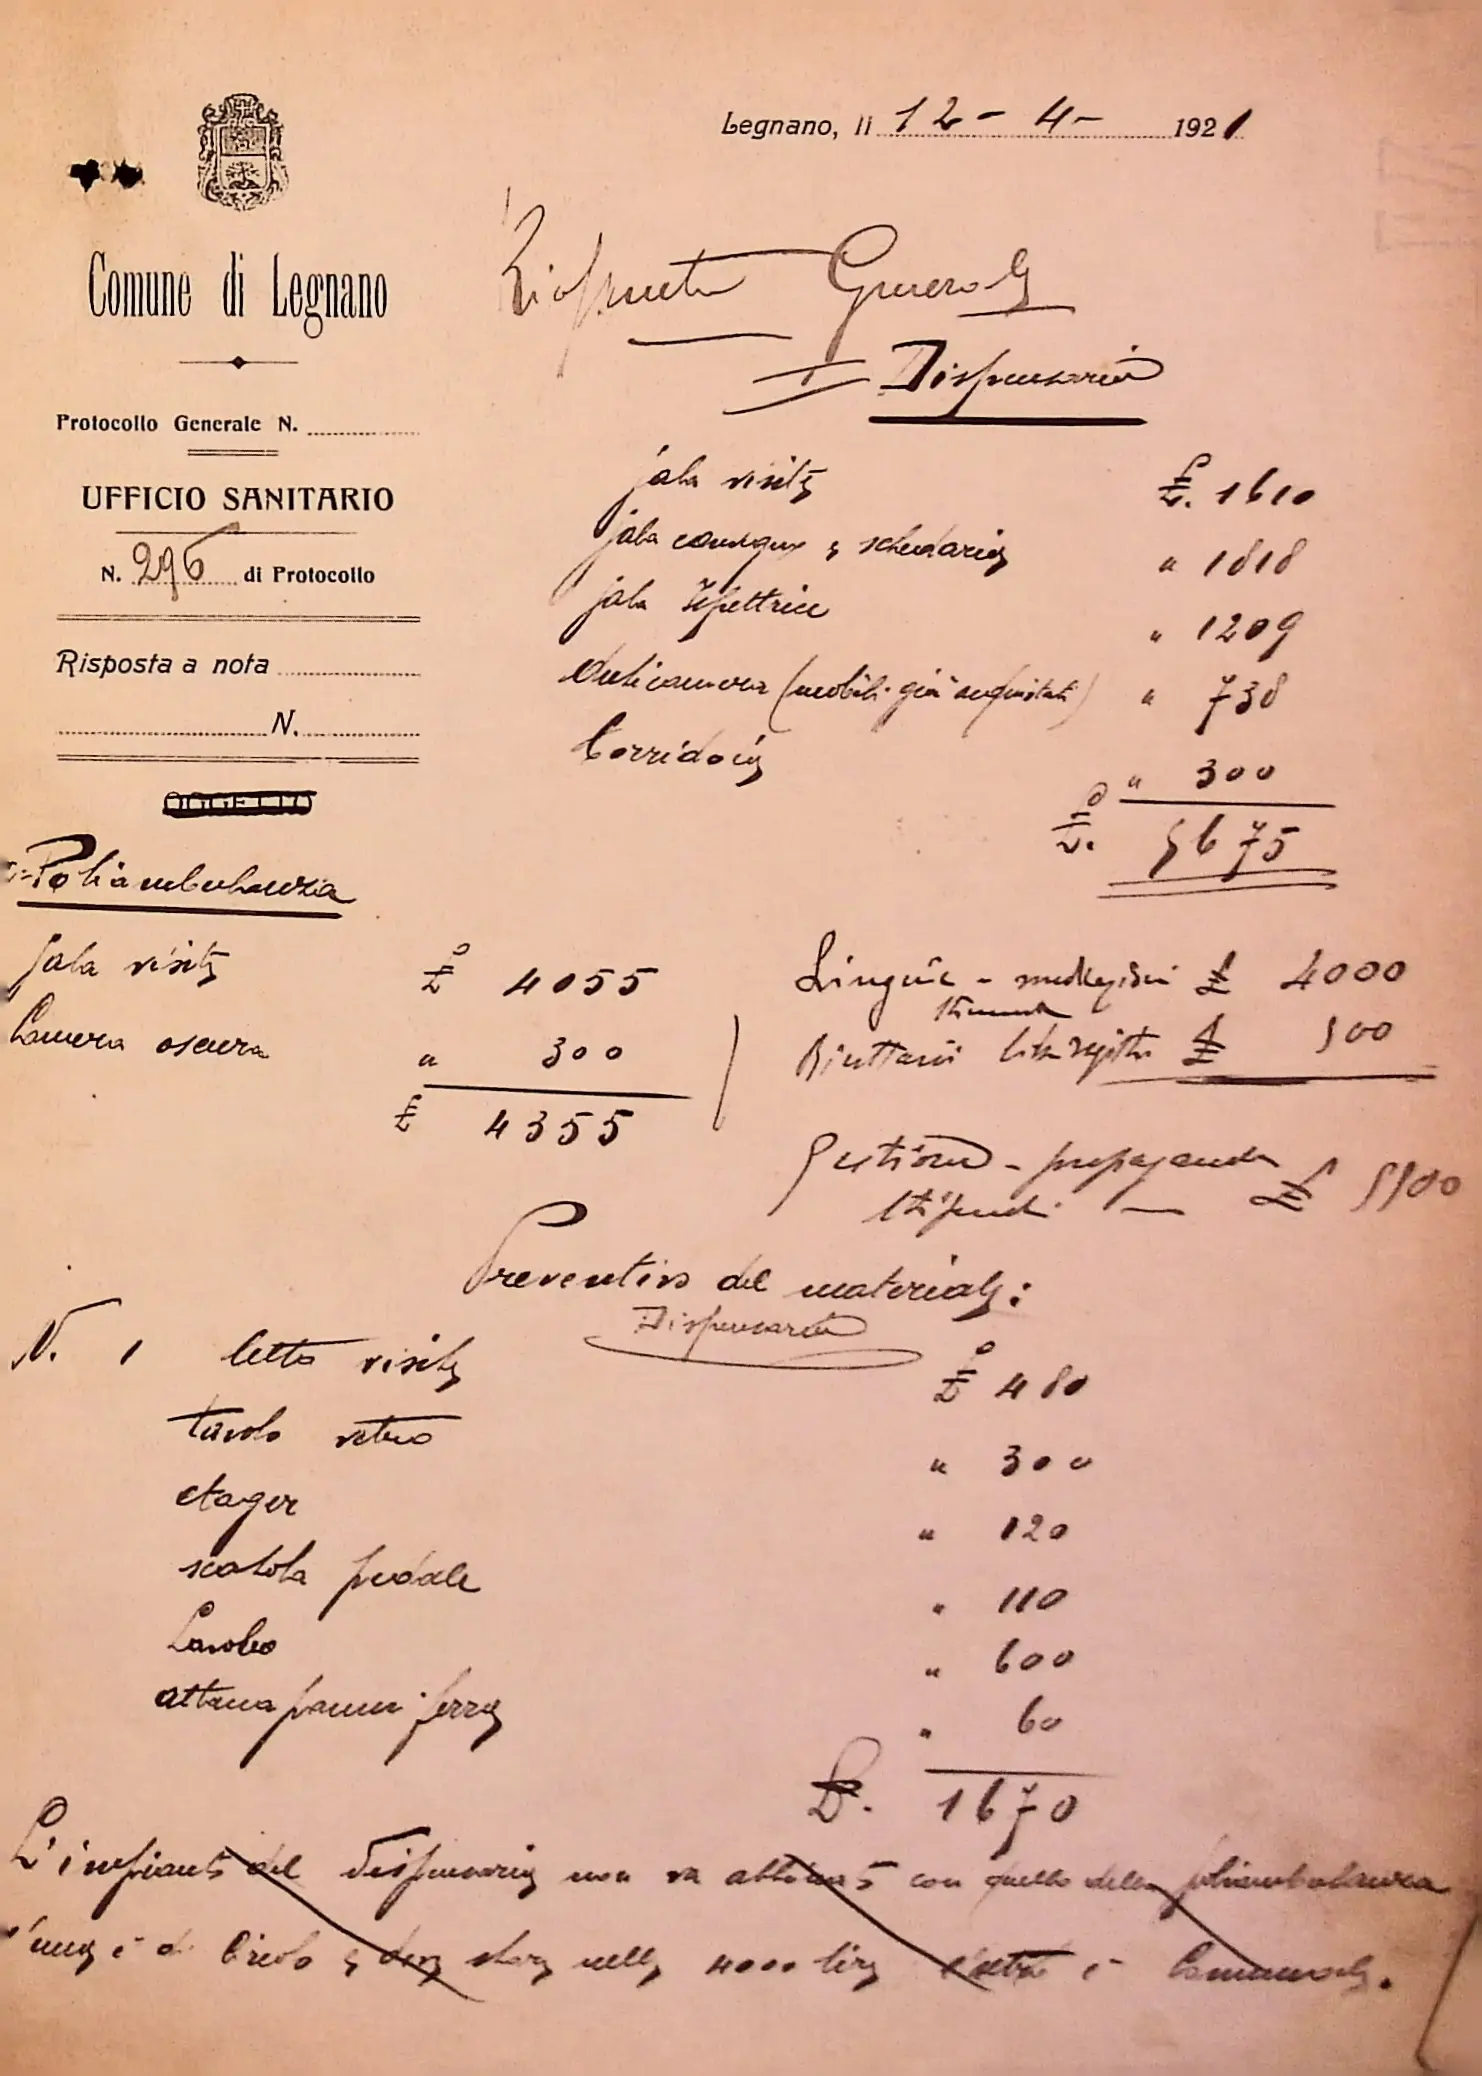 Legnano, li 12 - 4 - 1921
Comune di Legnano
Protocollo Generale N.
UFFICIO SANITARIO
N. 296 di Protocollo
Risposta a nota
N.
Riassunto Generale
I = Dispensario
Sala visite £. 1610
Sala consegne e schedario " 1818
Sala Aspettrice " 1209
Anticamera (mobili già acquistati) " 738
Corridoio " 300
£. 5675
Poliambulanza
Sala visite £ 4055
Camera oscura " 300
£ 4355
- medicazioni £ 4000
stampati
registri £ 500
Gestione - propaganda
stipendi — £ 5500
Preventivo del materiale:
Dispensario
N. 1 letto visite £ 480
tavolo vetro " 300
etager " 120
scatola pedale " 110
Lavabo " 600
attaccapanni ferro " 60
£. 1670
L'impianto del dispensario non va abbinato con quello della poliambulanza
l'uno è di Circolo e deve stare nelle 4000 lire l'altro è Comunale.